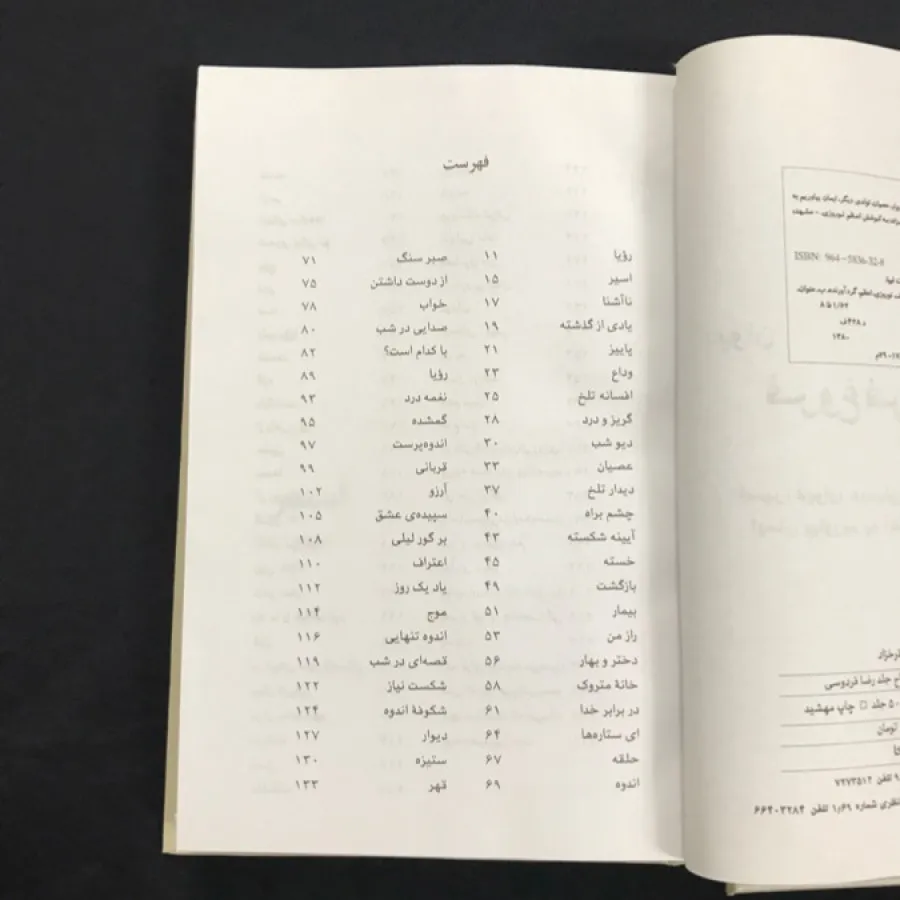 فهرست
رؤیا ۱۱
اسیر ۱۵
ناآشنا ۱۷
یادی از گذشته ۱۹
پاییز ۲۱
وداع ۲۳
افسانه تلخ ۲۵
گریز و درد ۲۸
دیو شب ۳۰
عصیان ۳۳
دیدار تلخ ۳۷
چشم براه ۴۰
آیینه شکسته ۴۳
خسته ۴۵
بازگشت ۴۹
بیمار ۵۱
راز من ۵۳
دختر و بهار ۵۶
خانهٔ متروک ۵۸
در برابر خدا ۶۱
ای ستاره‌ها ۶۴
حلقه ۶۷
اندوه ۶۹
صبر سنگ ۷۱
از دوست داشتن ۷۵
خواب ۷۸
صدایی در شب ۸۰
با کدام است؟ ۸۲
رؤیا ۸۹
نغمه درد ۹۳
گمشده ۹۵
اندوه‌پرست ۹۷
قربانی ۹۹
آرزو ۱۰۲
سپیده‌ی عشق ۱۰۵
بر گور لیلی ۱۰۸
اعتراف ۱۱۰
یاد یک روز ۱۱۲
موج ۱۱۴
اندوه تنهایی ۱۱۶
قصه‌ای در شب ۱۱۹
شکست نیاز ۱۲۲
شکوفهٔ اندوه ۱۲۴
دیوار ۱۲۷
ستیزه ۱۳۰
قهر ۱۳۳
عصیان تولدی دیگر، ایمان بیاوریم به
کوشش اعظم نوروزی. - مشهد:
ISBN: 964-5836-32-8
نوروزی، اعظم، گردآورنده. ب. عنوان.
۸ فا ۱/۶۲
۱۳۸۰
رخزاد
جلد رضا فردوسی
جلد □ چاپ مهشید
تومان
تلفن ۷۲۷۳۵۱۲
نظری شماره ۱/۶۹ تلفن ۶۶۴۰۳۲۸۴